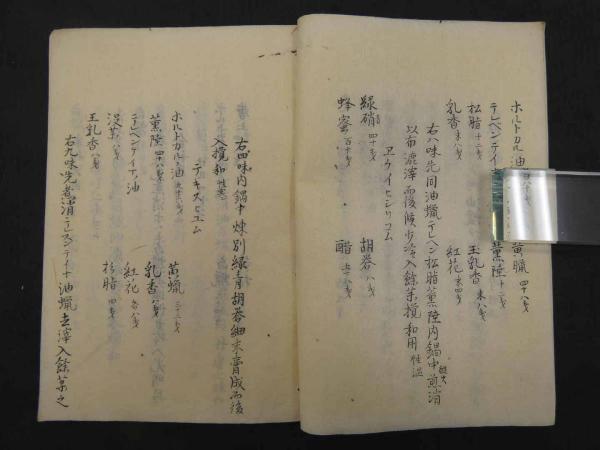 ホルトカル油 黄臘 四十八戔
テレヘンテイナ 薫陸 十二戔
松脂 十二戔 玉乳香 末八戔
乳香 末八戔 紅花 末四戔
右八味先同油蝋テレヘン松脂薫陸内鍋中煎消
以布漉滓而後候少冷入餘薬攪和用 性温
ヱウイヒシリコム
緑硝 四十戔 胡礬 八戔
蜂蜜 百十戔 醋
右四味内鍋中煉別緑青胡礬細末膏成而後
入攪和 性
テキスヒユム
ホルトカル油 黄蝋 三十二戔
薫陸 四十八戔 乳香 八戔
テレヘンテイナ油 紅花 八戔
没薬 八戔 松脂 四戔
玉乳香 八戔
右九味先煮消テレヘンテイナ油蝋去滓入餘薬之